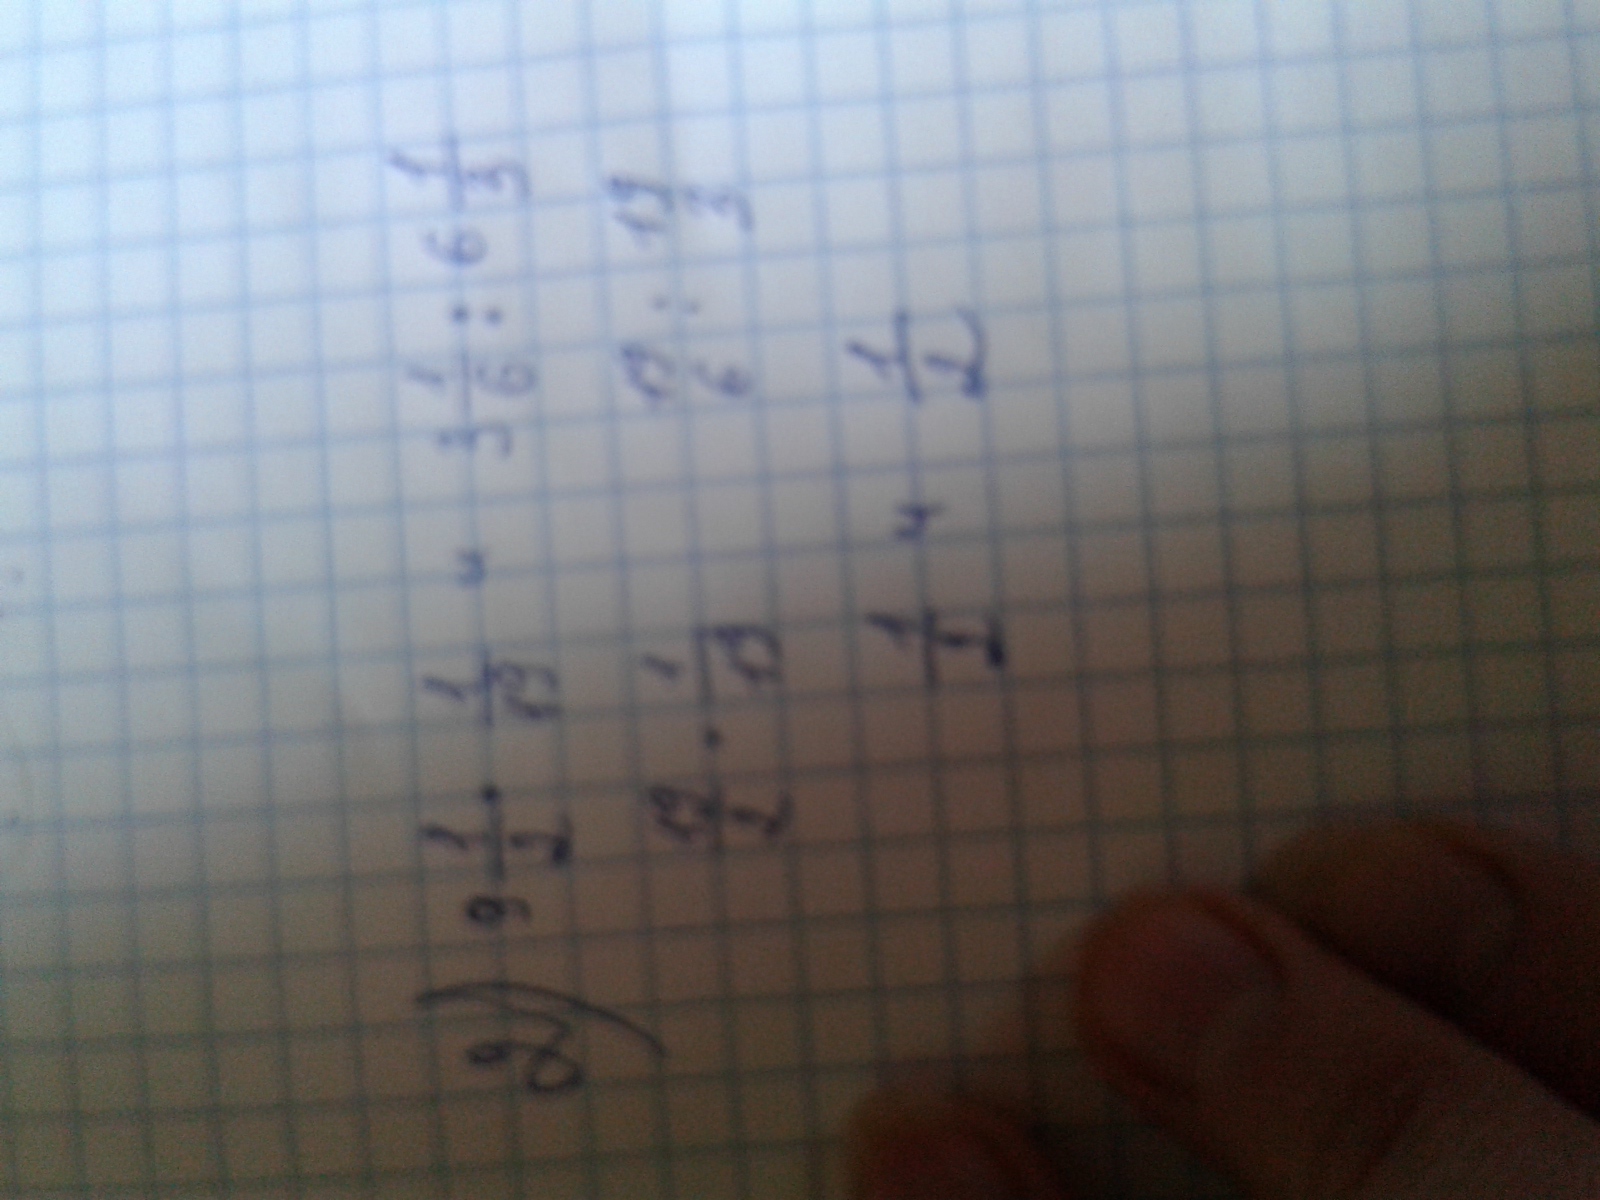 2) 9 1/2 · 1/19 и 3 1/6 : 6 1/3
19/2 · 1/19 19/6 : 19/3
1/2 и 1/2